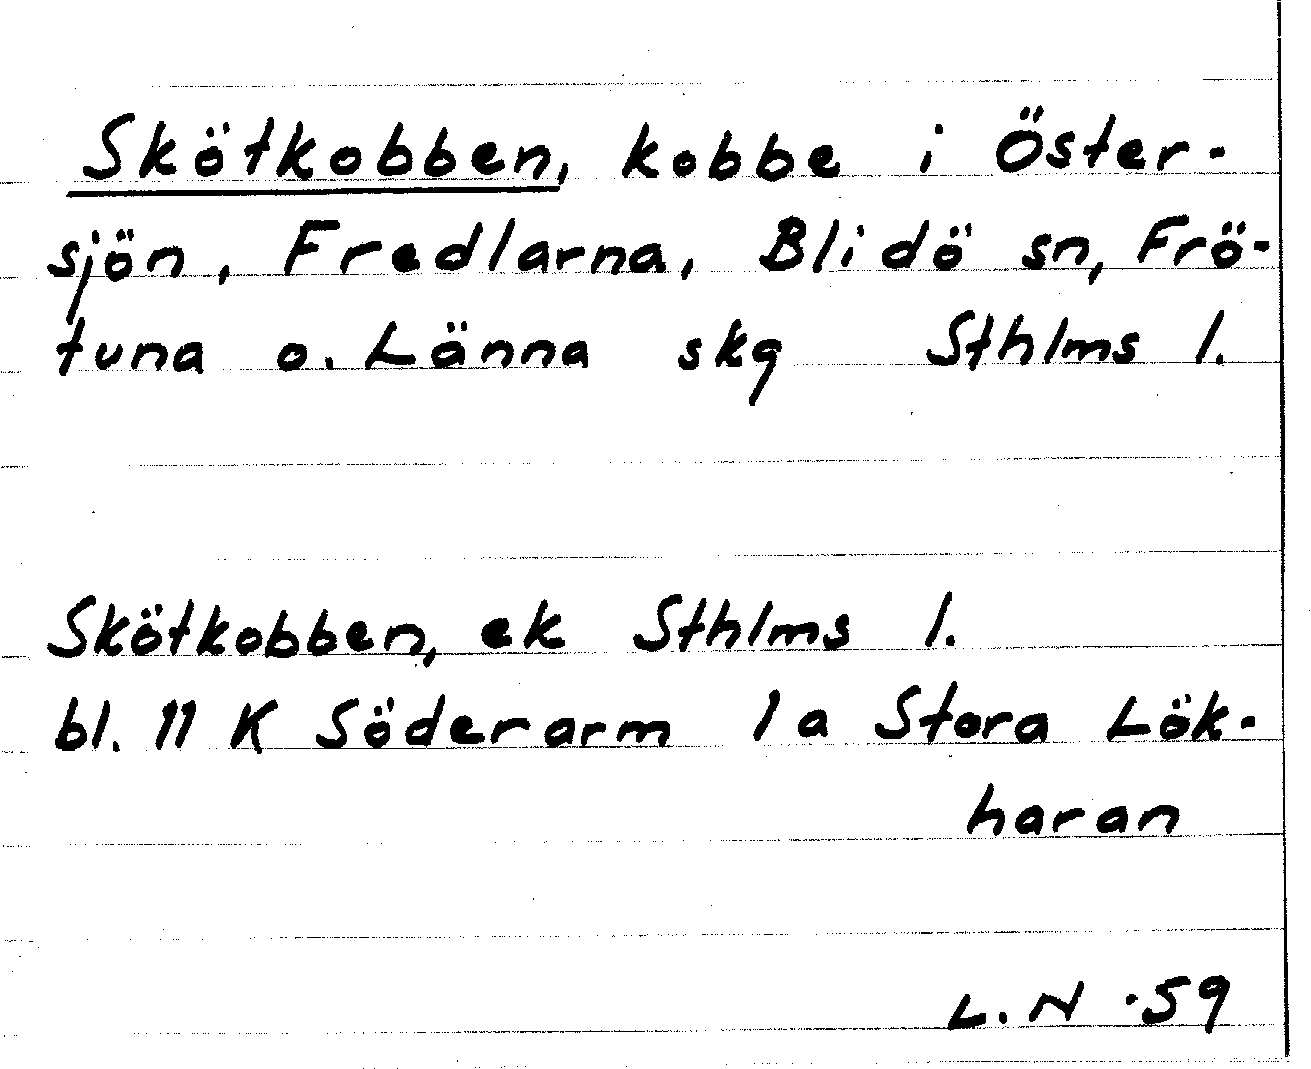 Skötkobben, kobbe i Öster-
sjön, Fredlarna, Blidö sn, Frö-
tuna o. Länna skg Sthlms l.
Skötkobben, ek Sthlms l.
bl. 11 K Söderarm 1 a Stora Lök-
haran
L. N -59